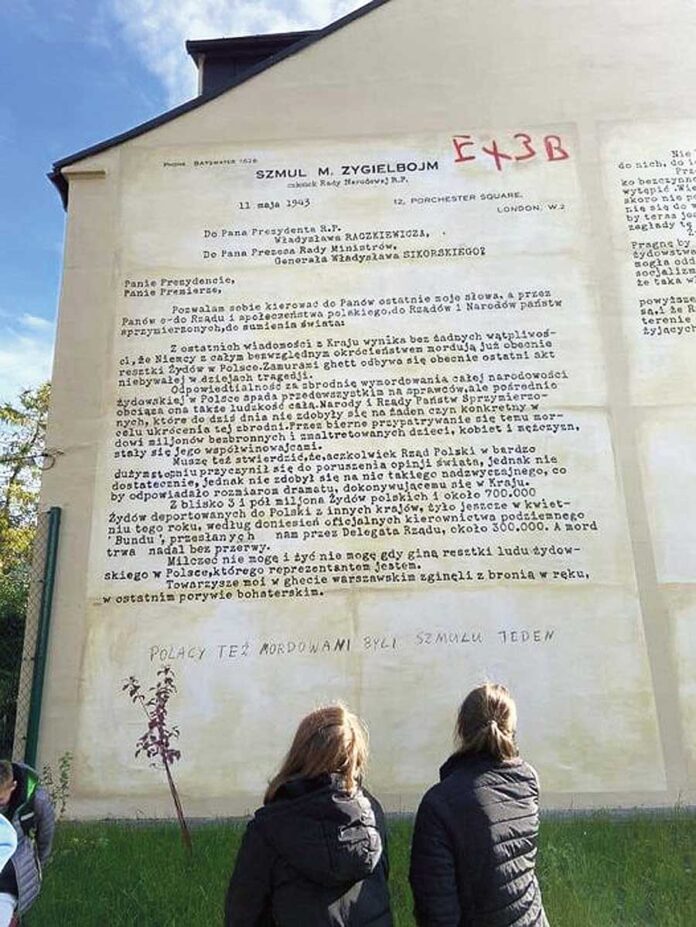 PHONE BAYSWATER 1628
EX3B
SZMUL M. ZYGIELBOJM
członek Rady Narodowej R.P.
11 maja 1943
12, PORCHESTER SQUARE,
LONDON, W.2
Do Pana Prezydenta R.P.
Władysława RACZKIEWICZA,
Do Pana Prezesa Rady Ministrów,
Generała Władysława SIKORSKIEGO?
Panie Prezydencie,
Panie Premierze,
Pozwalam sobie kierować do Panów ostatnie moje słowa, a przez
Panów - do Rządu i społeczeństwa polskiego, do Rządów i Narodów państw
sprzymierzonych, do sumienia świata:
Z ostatnich wiadomości z Kraju wynika bez żadnych wątpliwoś-
ci, że Niemcy z całym bezwzględnym okrócieństwem mordują już obecnie
resztki Żydów w Polsce. Zamurami ghett odbywa się obecnie ostatni akt
niebywałej w dziejach tragedji.
Odpowiedtialność za zbrodnię wymordowania całej narodowości
żydowskiej w Polsce spada przedewszystkim na sprawców, ale pośrednio
obciąża ona także ludzkość całą, Narody i Rządy Państw Sprzymierzo-
nych, które do dziś dnia nie zdobyły się na żaden czyn konkretny w
celu ukrócenia tej zbrodni. Przez bierne przypatrywanie się temu mor-
dowi miljonów bezbronnych i zmaltretowanych dzieci, kobiet i mężczyzn,
stały się jego współwinowajcami.
Muszę też stwierdzić, że, aczkolwiek Rząd Polski w bardzo
dużym stopniu przyczynił się do poruszenia opinji świata, jednak nie
dostatecznie, jednak nie zdobył się na nic takiego nadzwyczajnego, co
by odpowiadało rozmiarom dramatu, dokonywującemu się w Kraju.
Z blisko 3 i pół miljona Żydów polskich i około 700.000
Żydów deportowanych do Polski z innych krajów, żyło jeszcze w kwiet-
niu tego roku, według doniesień oficjalnych kierownictwa podziemnego
'Bundu', przesłanych nam przez Delegata Rządu, około 300.000. A mord
trwa nadal bez przerwy.
Milczeć nie mogę i żyć nie mogę gdy giną resztki ludu żydow-
skiego w Polsce, którego reprezentantem jestem.
Towarzysze moi w ghecie warszawskim zginęli z bronią w ręku,
w ostatnim porywie bohaterskim.
POLACY TEŻ MORDOWANI BYLI SZMULU JEDEN
Nie
do nich, do i
Prze
ko bezczynno
wytępić. Wi
skoro nie po
nię się do w
by teraz jes
zagłady tę
Pragnę by
żydowstwa
mogła odd
socjalizm
że taka w
powyższ
są, i że R
terenie
żyjących